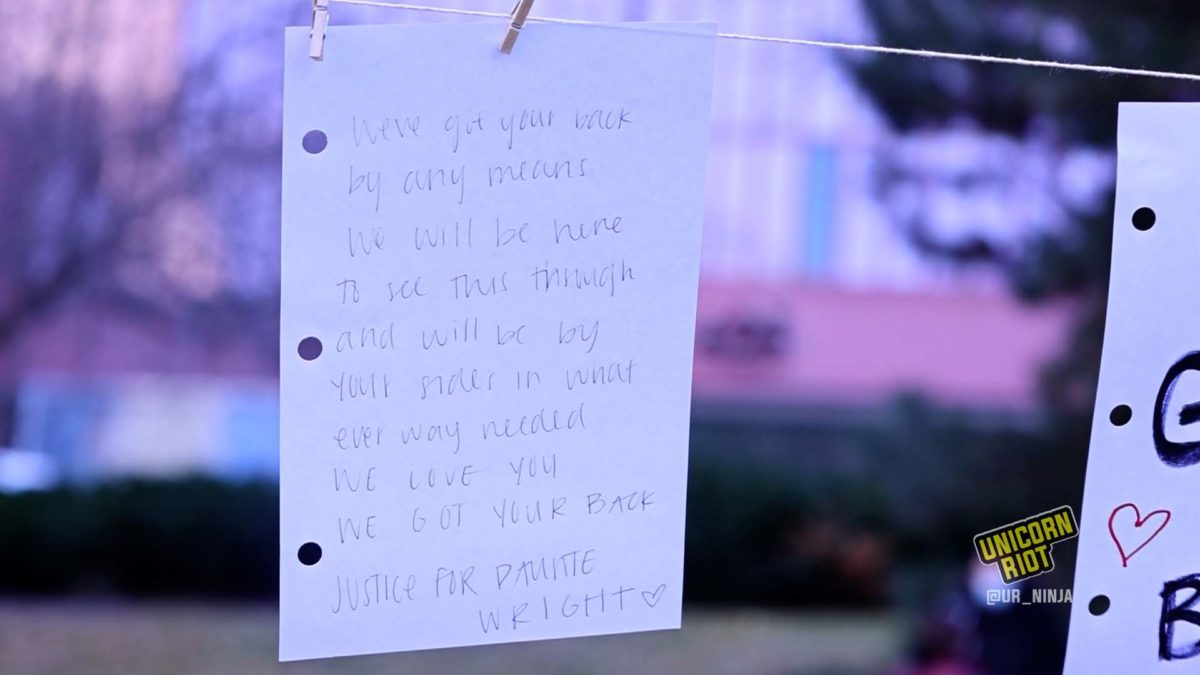 We've got your back
by any means
We will be here
to see this through
and will be by
your sides in what
ever way needed
WE LOVE YOU
WE GOT YOUR BACK
JUSTICE FOR DAUNTE
WRIGHT ♡
G
♡
B
UNICORN
RIOT
@UR_NINJA